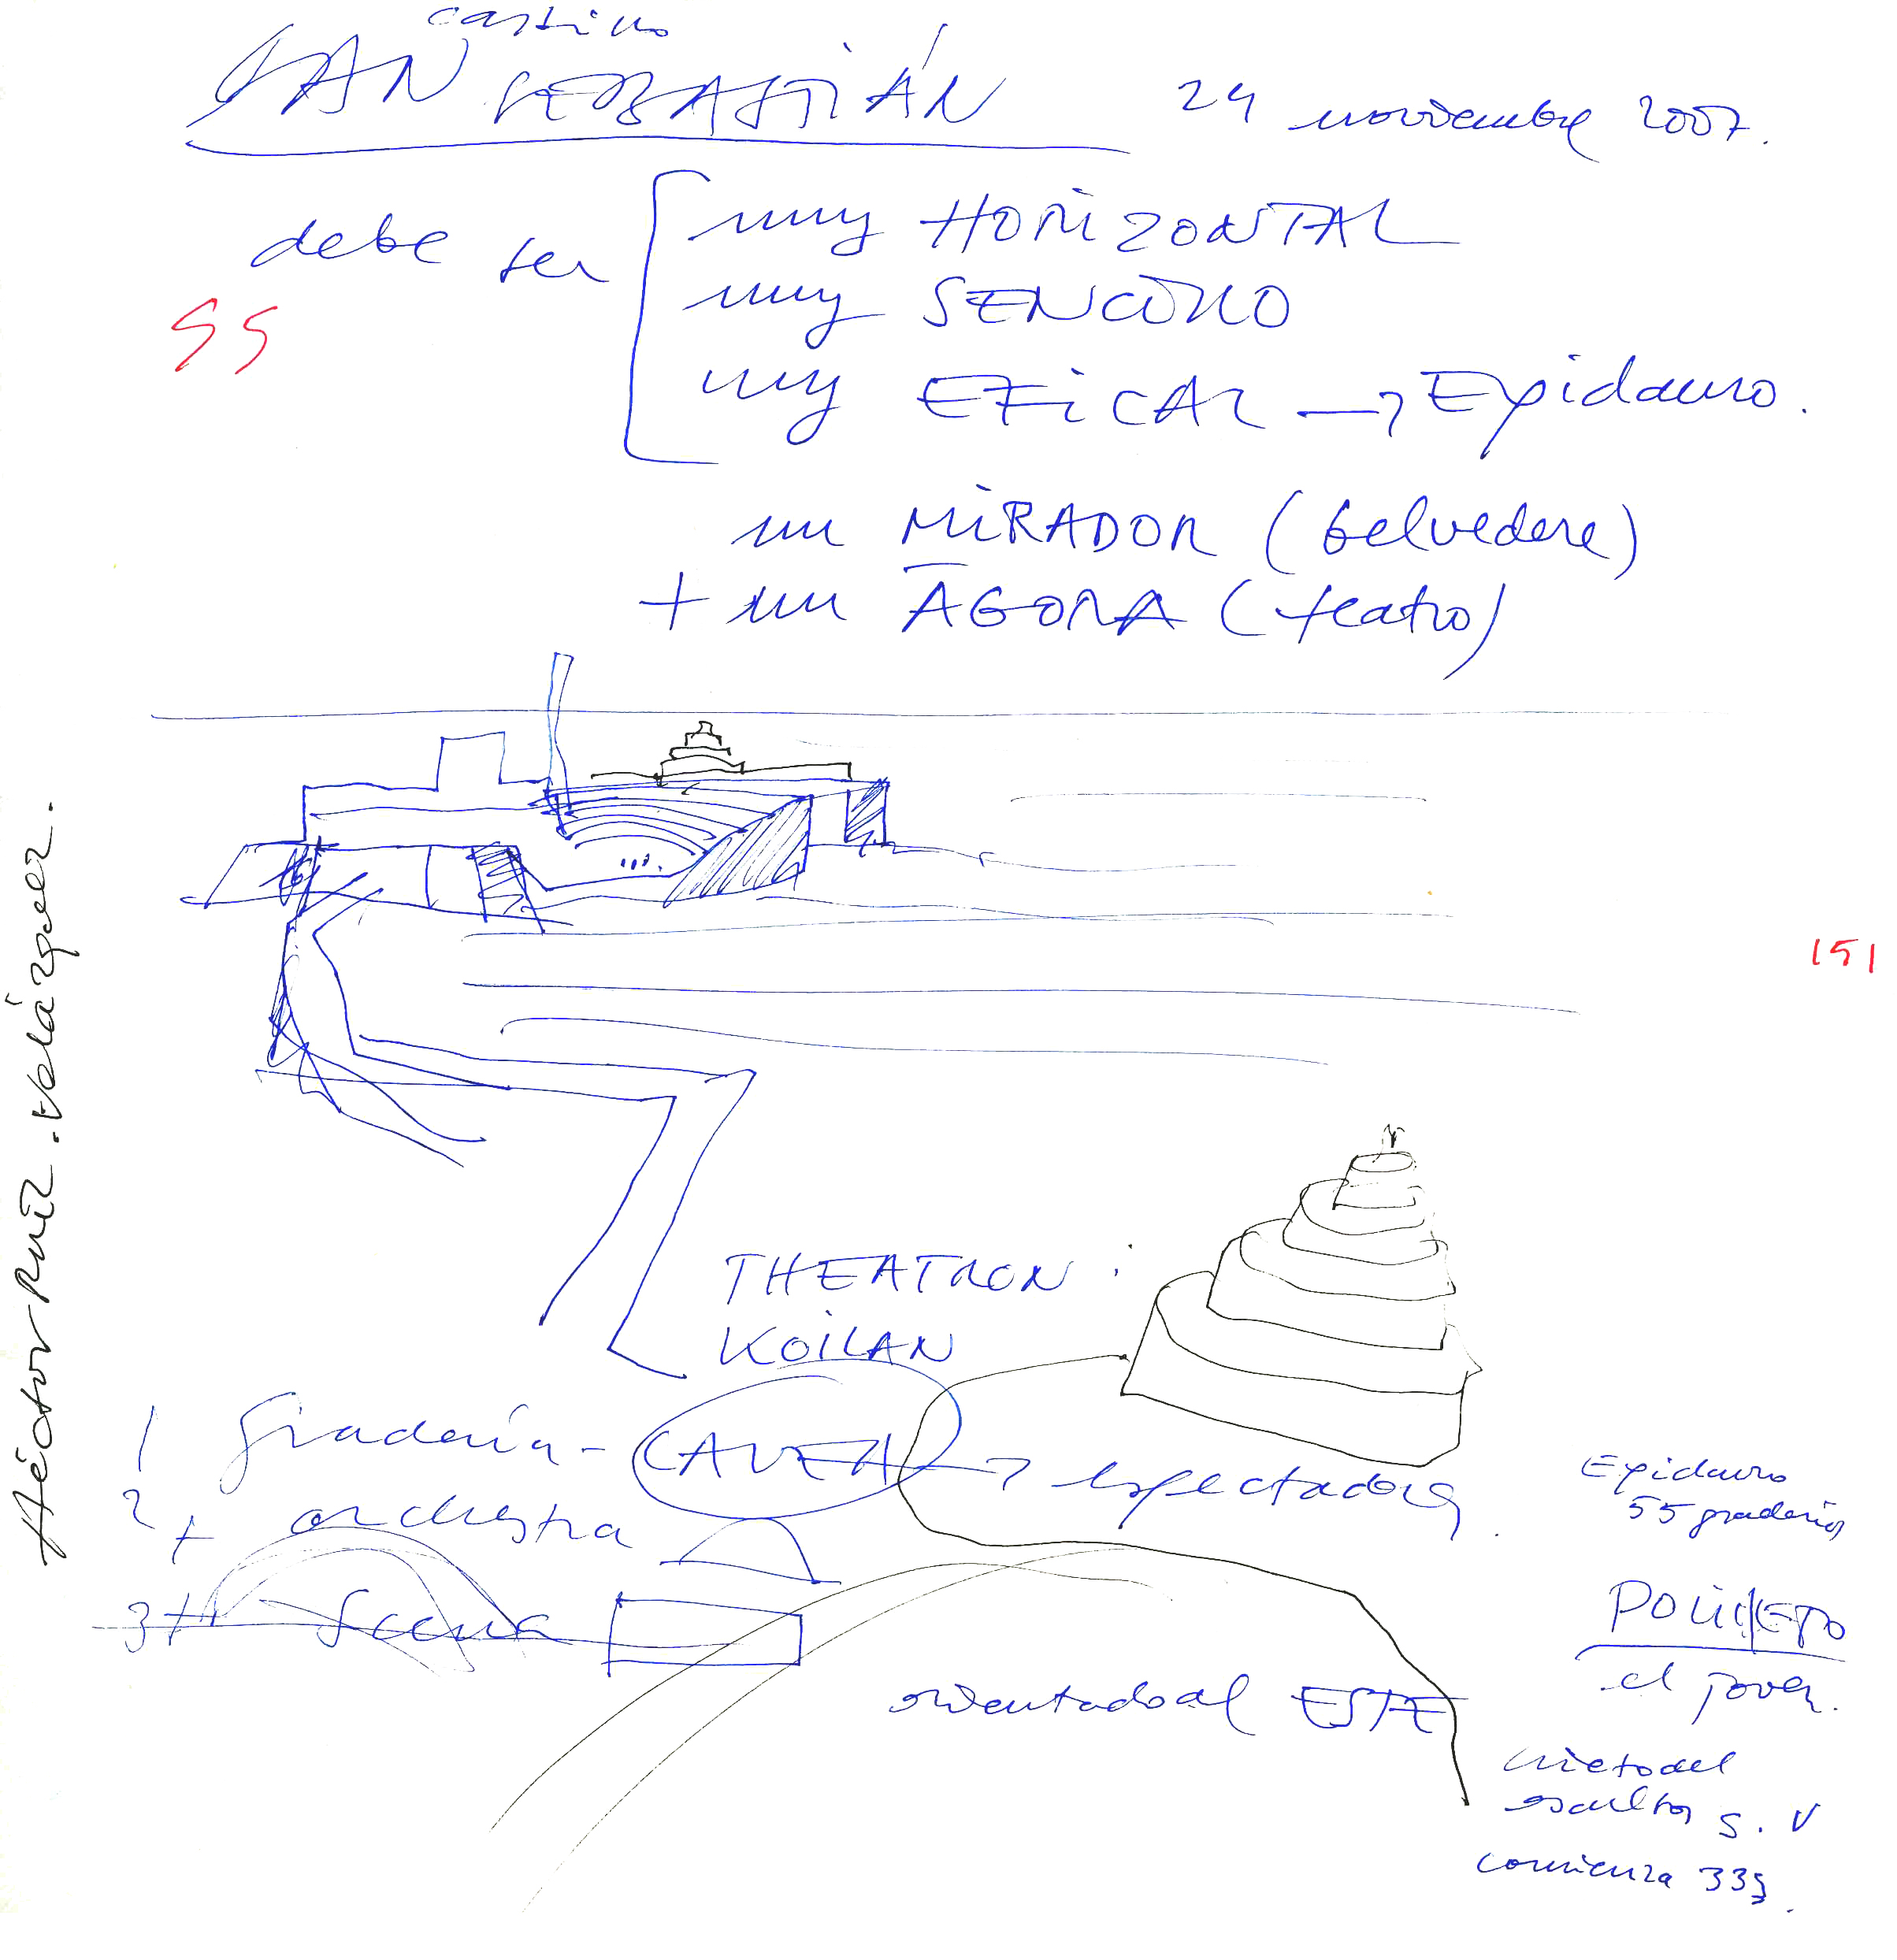 castillo
SAN SEBASTIÁN 24 noviembre 2007.
debe ser
muy HORIZONTAL
muy SENCILLO
muy EFICAZ → Epidauro.
55
un MIRADOR (belvedere)
+ un ÁGORA (teatro)
151
Héctor Ruiz. Velázquez.
THEATRON:
KOILAN
1 gradería - CAVEA → espectadores.
2 + orchestra
3 + scena
Epidauro
55 graderios
POLICLETO
el joven.
orientado al ESTE
nieto del
escultor S. V
comienza 33